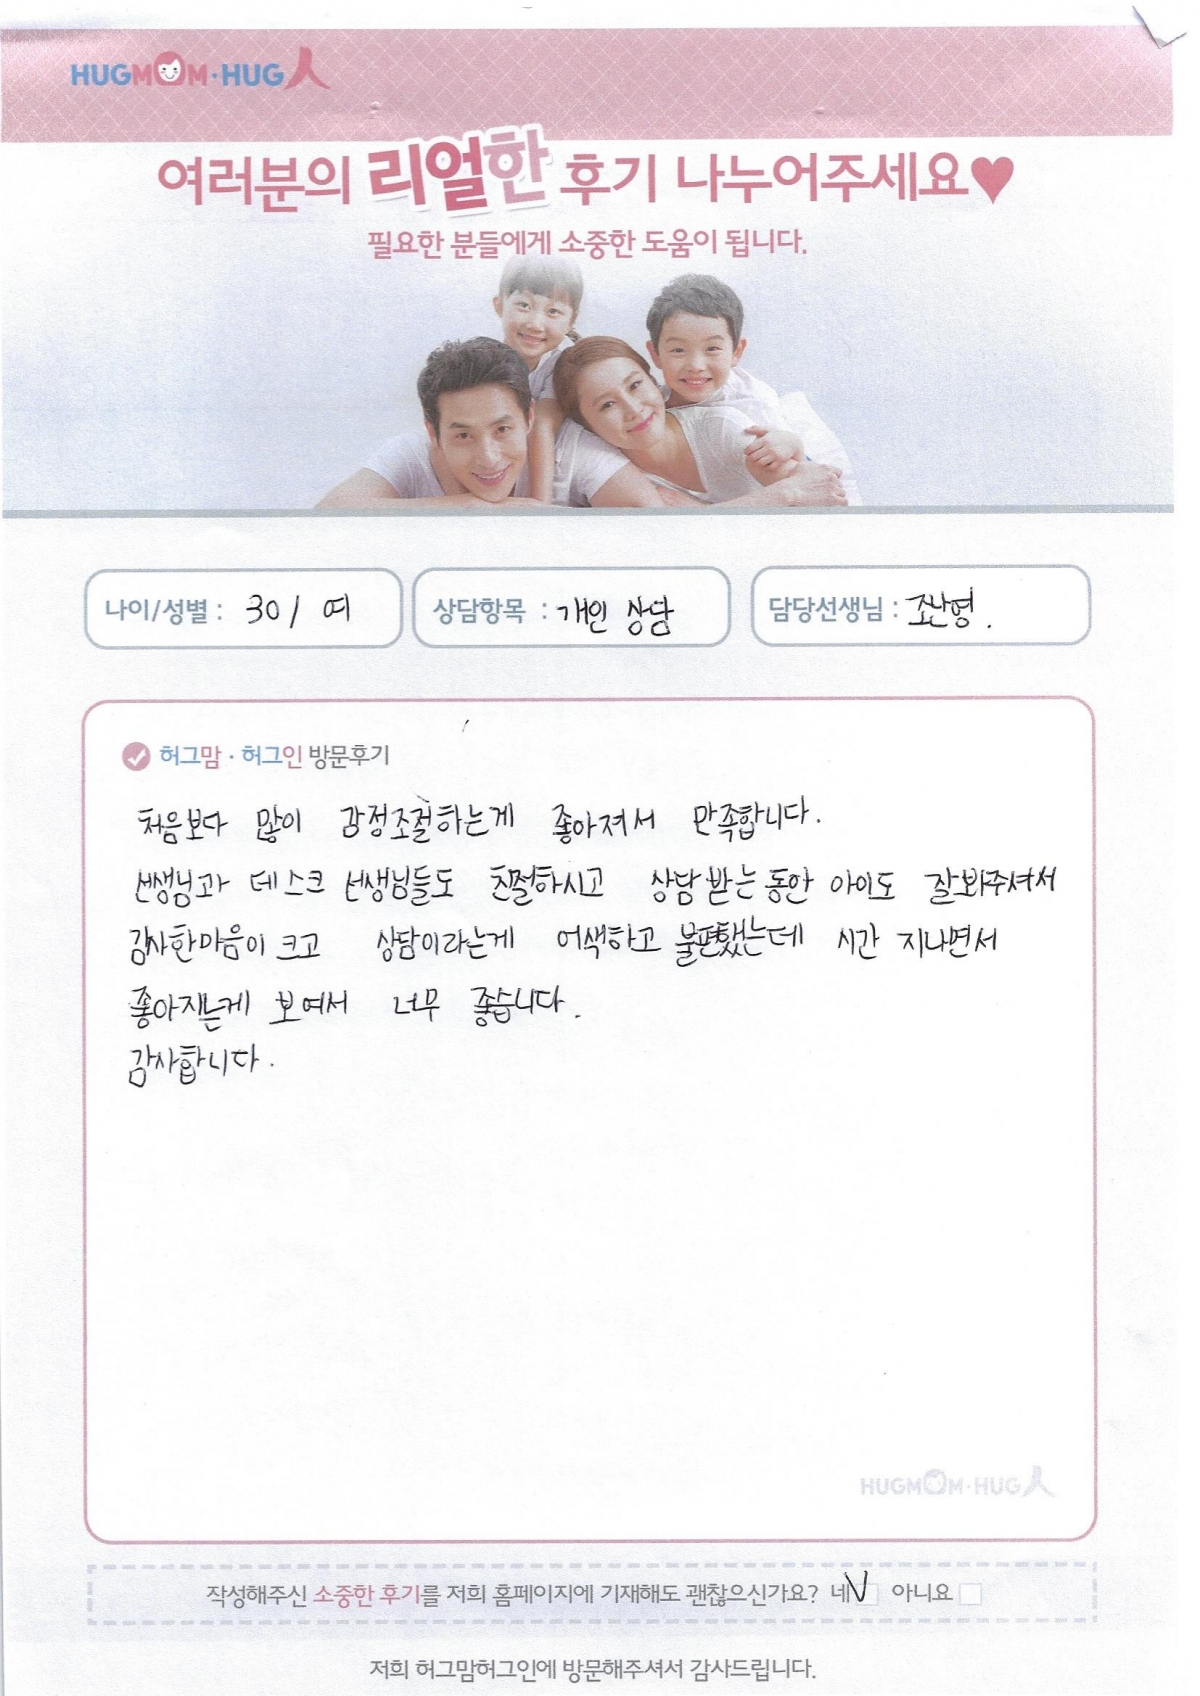 HUGMOM·HUG人
여러분의 리얼한 후기 나누어주세요♥
필요한 분들에게 소중한 도움이 됩니다.
나이/성별 : 30 / 여 상담항목 : 개인 상담 담당선생님 : 조난영.
허그맘·허그인 방문후기
처음보다 많이 감정조절하는게 좋아져서 만족합니다.
선생님과 데스크 선생님들도 친절하시고 상담 받는 동안 아이도 잘봐주셔서
감사한마음이 크고 상담이라는게 어색하고 불편했는데 시간 지나면서
좋아지는게 보여서 너무 좋습니다.
감사합니다.
HUGMOM·HUG人
작성해주신 소중한 후기를 저희 홈페이지에 기재해도 괜찮으신가요? 네 V 아니요
저희 허그맘허그인에 방문해주셔서 감사드립니다.